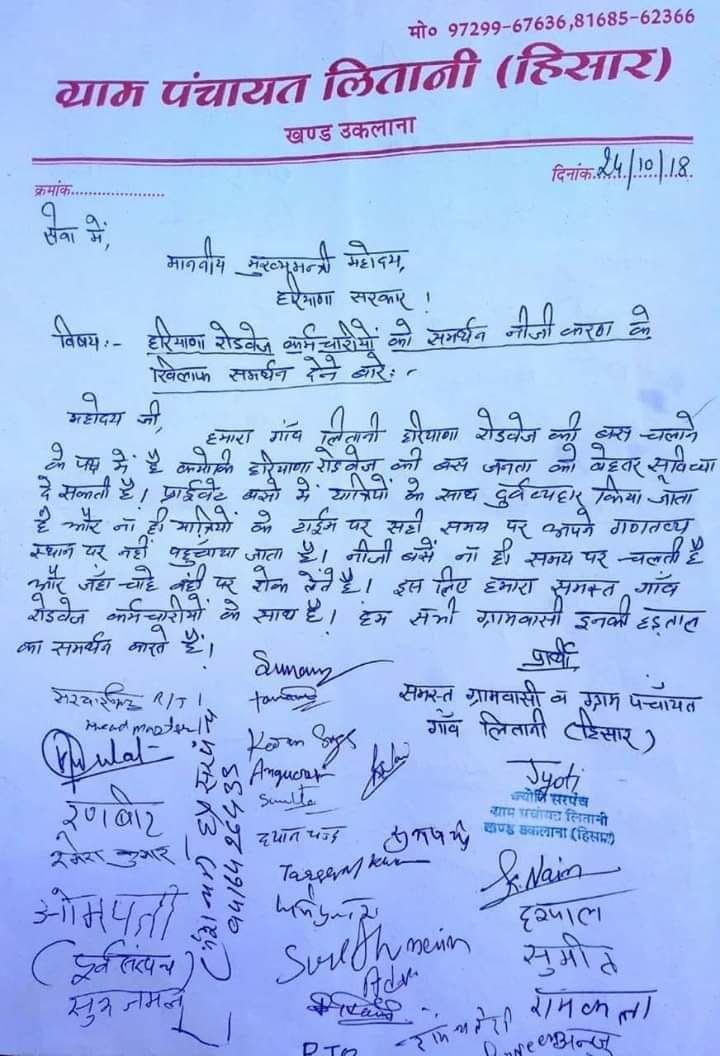 मो० 97299-67636,81685-62366
ग्राम पंचायत लितानी (हिसार)
खण्ड उकलाना
क्रमांक....................
दिनांक.24/10/18.
सेवा में,
माननीय मुख्यमन्त्री महोदय,
हरियाणा सरकार !
विषय:- हरियाणा रोडवेज कर्मचारीयों को समर्थन नीजीकरण के
खिलाफ समर्थन देने बारे:-
महोदय जी,
हमारा गाँव लितानी हरियाणा रोडवेज की बस चलाने
के पक्ष में है क्योकि हरियाणा रोडवेज की बस जनता को बेहतर सुविधा
दे सकती है। प्राईवेट बसो में यात्रियों के साथ दुर्वव्यहार किया जाता
है और ना ही यात्रियों के टाईम पर सही समय पर आपने गणतव्य
स्थान पर नहीं पहुचाया जाता है। नीजी बसें ना ही समय पर चलती है
और जहाँ चाहे वंही पर रोक लेते है। इस लिए हमारा समस्त गाँव
रोडवेज कर्मचारीयों के साथ है। हम सभी ग्रामवासी इनकी हड़ताल
का समर्थन करते हैं।
प्रार्थी
समस्त ग्रामवासी व ग्राम पंचायत
गाँव लितानी (हिसार)
Jyoti
ज्योति सरपंच
ग्राम पंचायत लितानी
खण्ड उकलाना (हिसार)
रणबीर
रमेश कुमार
ओमपती
(पूर्व सरपंच)
पूर्व सरपंच
Karam Singh
Sunita
Suresh nain
Nain
सुमीत
रामकला